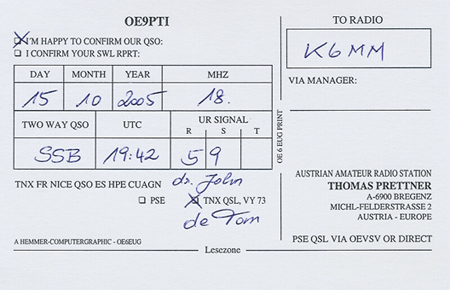 OE9PTI
☒ I'M HAPPY TO CONFIRM OUR QSO:
☐ I CONFIRM YOUR SWL RPRT:
DAY MONTH YEAR MHZ
15 10 2005 18.
TWO WAY QSO UTC UR SIGNAL
R S T
SSB 19:42 5 9
TNX FR NICE QSO ES HPE CUAGN dr. John
☐ PSE ☒ TNX QSL, VY 73
de Tom
A HEMMER-COMPUTERGRAPHIC - OE6EUG
Lesezone
OE 6 EUG PRINT
TO RADIO
K6MM
VIA MANAGER:
AUSTRIAN AMATEUR RADIO STATION
THOMAS PRETTNER
A-6900 BREGENZ
MICHL-FELDERSTRASSE 2
AUSTRIA - EUROPE
PSE QSL VIA OEVSV OR DIRECT